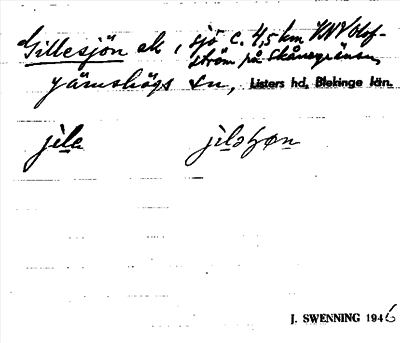 Gillesjön ek, sjö c. 4,5 km VNV Olof-
ström på Skånegränsen
Jämshögs sn, Listers hd, Blekinge län.
jıle jılsɧøn
J. SWENNING 1946